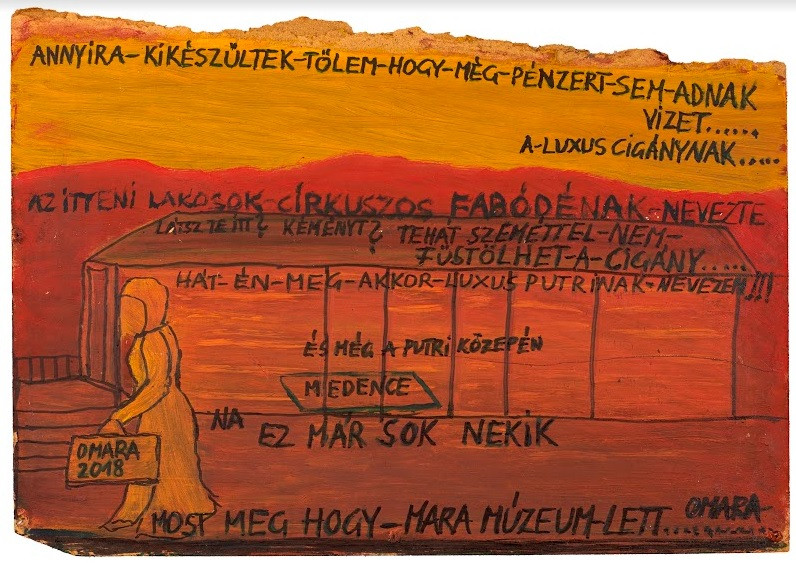 ANNYIRA-KIKÉSZÜLTEK-TŐLEM-HOGY-MÉG-PÉNZERT-SEM-ADNAK
VIZET......
A-LUXUS CIGÁNYNAK.....
AZ ITTENI LAKOSOK-CÍRKUSZOS FABÓDÉNAK-NEVEZTE
LÁTSZ TE ITT? KÉMÉNYT? TEHÁT SZEMÉTTEL-NEM-
FÜSTÖLHET-A-CIGÁNY.....
HÁT-ÉN-MEG-AKKOR-LUXUS PUTRINAK-NEVEZEM!!!
ÉS MÉG A PUTRI KÖZEPÉN
MEDENCE
NA EZ MÁR SOK NEKIK
OMARA
2018
MOST MEG HOGY-MARA MÚZEUM-LETT.......
OMARA-